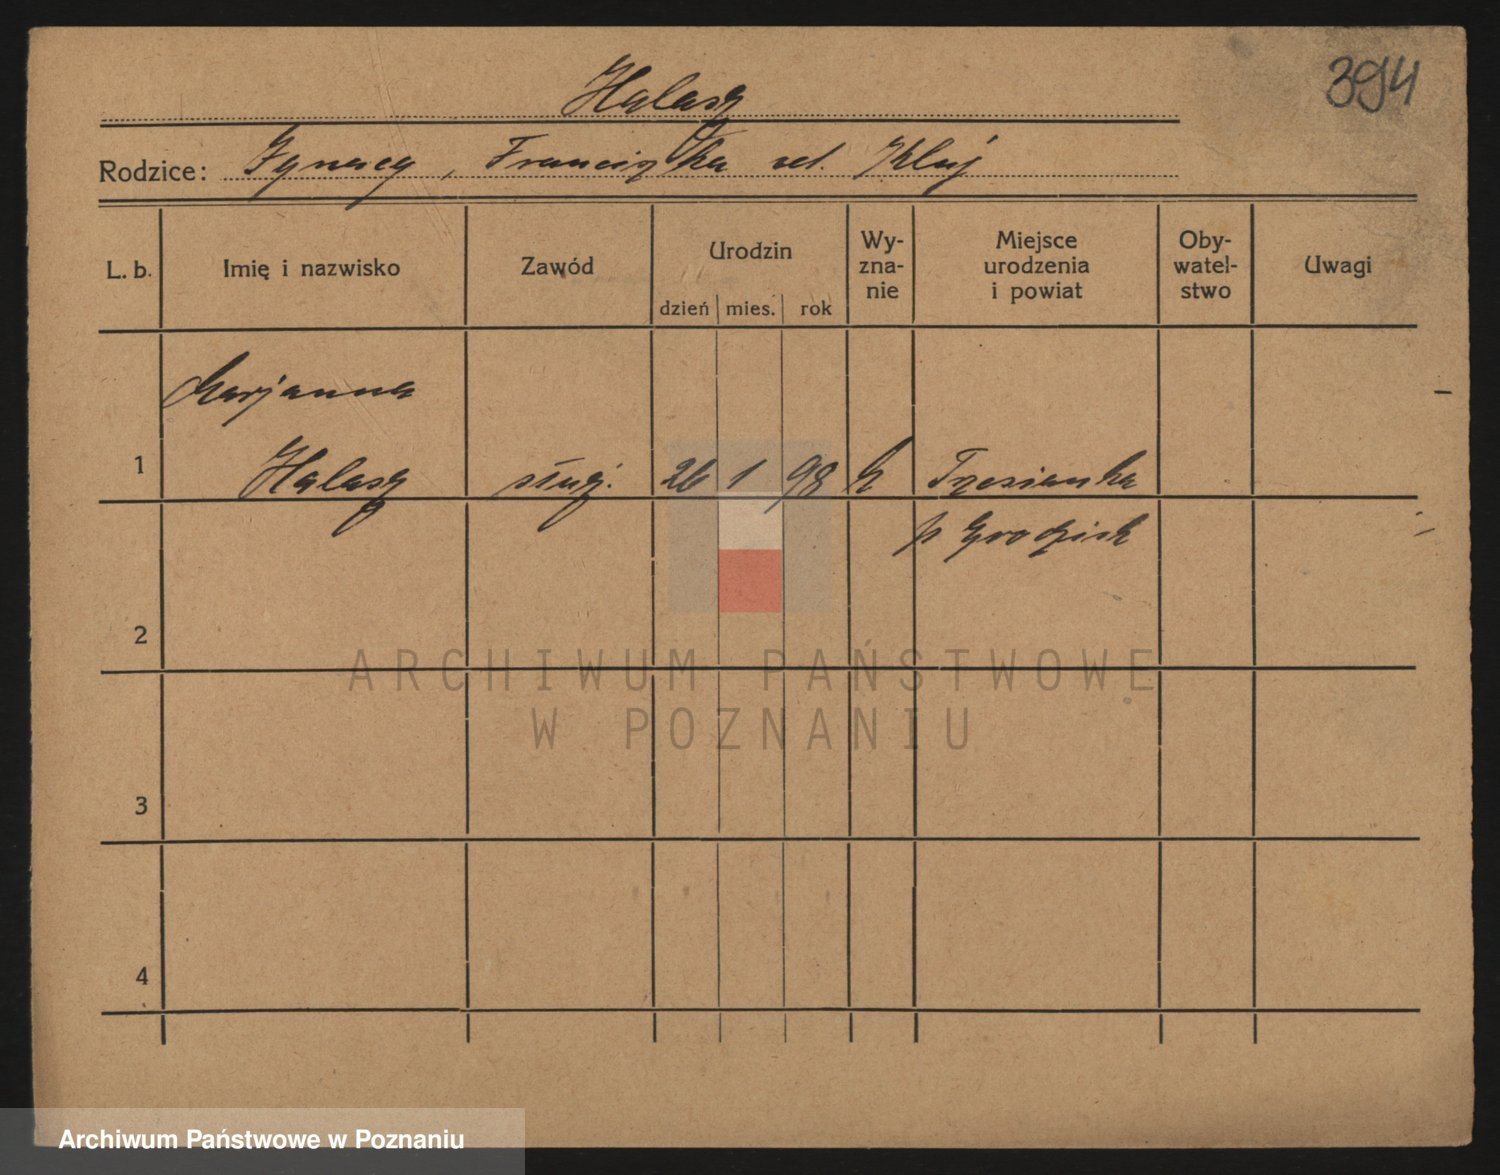 394
Halasz
Rodzice: Ignacy, Franciszka ur. Kluj
L. b. Imię i nazwisko Zawód Urodzin dzień mies. rok Wy-zna-nie Miejsce urodzenia i powiat Oby-watel-stwo Uwagi
Marjanna
1 Halasz służ. 26 1 98 k Trzcianka
p Grodzisk
2
3
4
ARCHIWUM PAŃSTWOWE
W POZNANIU
Archiwum Państwowe w Poznaniu